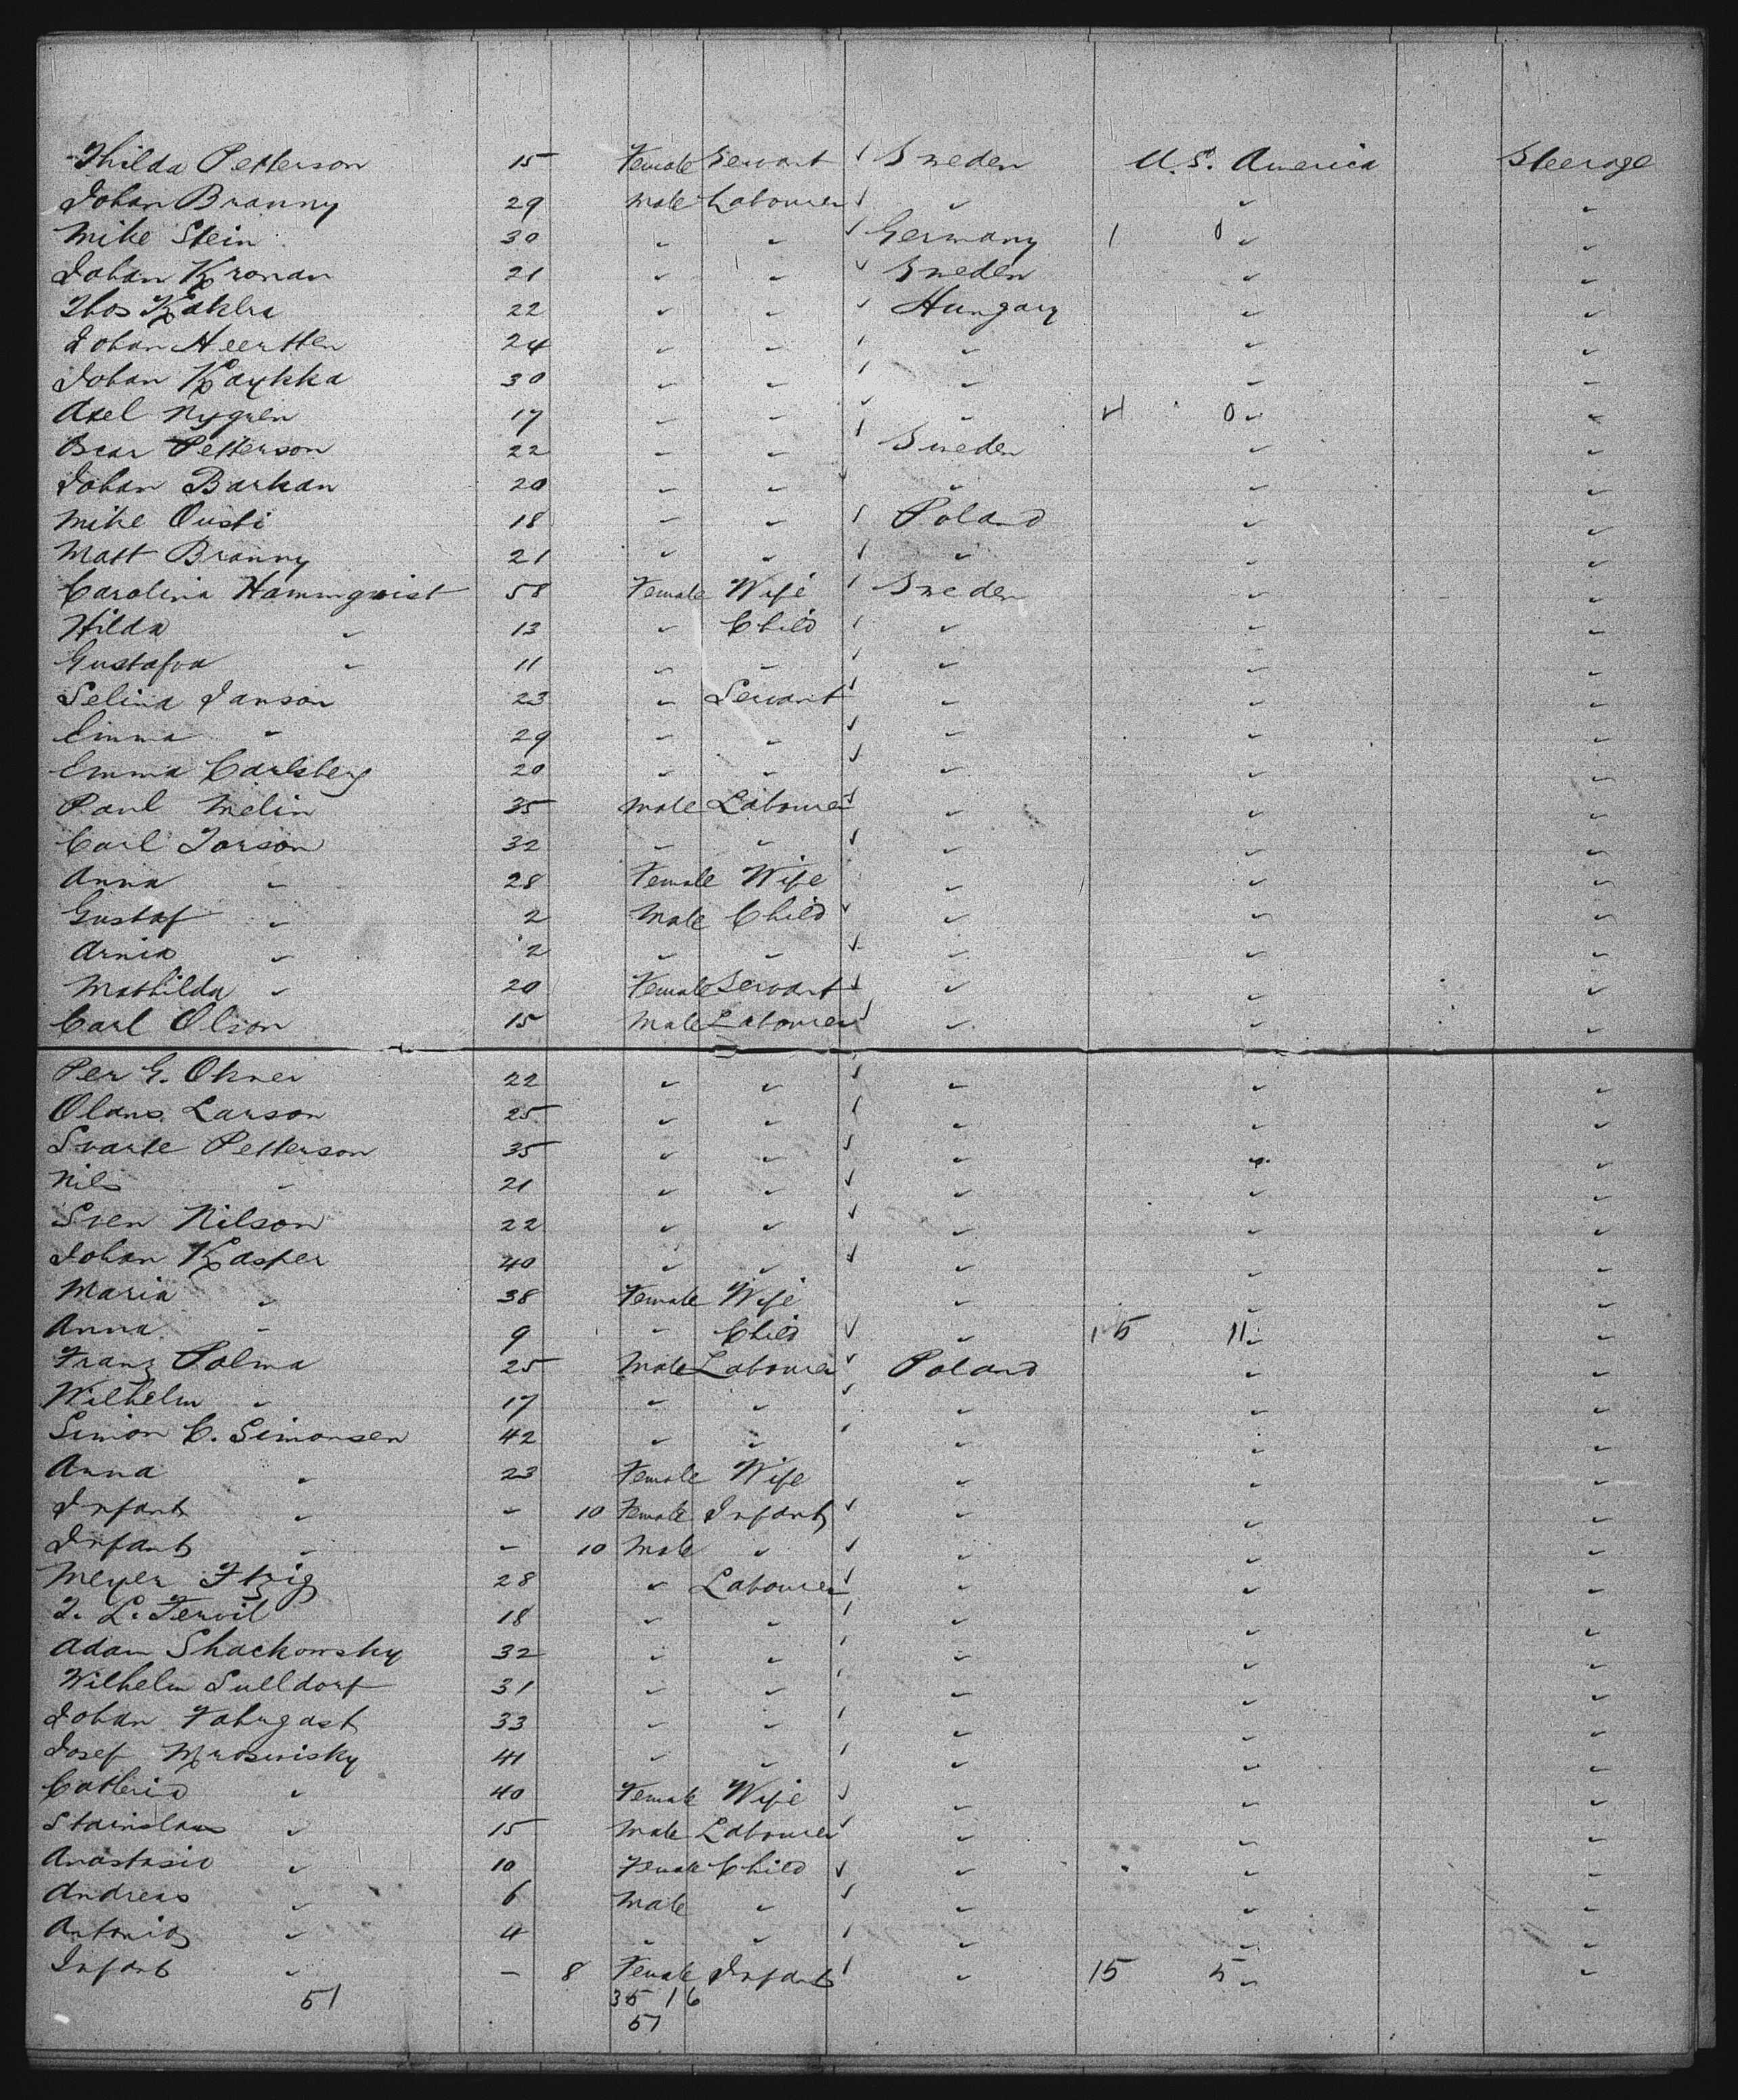 Thilda Petterson 15 Female Servant ✓ Sweden U.S. America Steerage
Johan Branny 29 Male Labourer ✓ " " "
Mike Stein 30 " " ✓ Germany 1 0 " "
Johan Kronan 21 " " ✓ Sweden " "
Thos Kahlra 22 " " ✓ Hungary " "
Johan Heertten 24 " " ✓ " " "
Johan Kaykka 30 " " ✓ " " "
Axel Nygren 17 " " ✓ " 4 0 " "
Oscar Petterson 22 " " ✓ Sweden " "
Johan Barkan 20 " " ✓ " " "
Mike Ousti 18 " " ✓ Poland " "
Matt Branny 21 " " ✓ " " "
Carolina Hammqvist 58 Female Wife ✓ Sweden " "
Hilda " 13 " Child ✓ " " "
Gustafva " 11 " " ✓ " " "
Selina Janson 23 " Servant ✓ " " "
Emma " 29 " " ✓ " " "
Emma Carlsberg 20 " " ✓ " " "
Paul Melin 35 Male Labourer ✓ " " "
Carl Torson 32 " " ✓ " " "
Anna " 28 Female Wife " " "
Gustaf " 2 Male Child ✓ " " "
Arnid " 2 " " ✓ " " "
Mathilda " 20 Female Servant ✓ " " "
Carl Olson 15 Male Labourer ✓ " " "
Per G. Okner 22 " " ✓ " " "
Olans Larson 25 " " ✓ " " "
Svarte Petterson 35 " " ✓ " " "
Nils " 21 " " ✓ " " "
Sven Nilson 22 " " ✓ " " "
Johan Kasper 40 " " ✓ " " "
Maria " 38 Female Wife " " "
Anna " 9 " Child ✓ " 15 11 " "
Franz Palma 25 Male Labourer ✓ Poland " "
Wilhelm " 17 " " ✓ " " "
Simon C. Simonsen 42 " " ✓ " " "
Anna " 23 Female Wife " " "
Infant " - 10 Female Infant ✓ " " "
Infant " - 10 Male " ✓ " " "
Meyer Itzig 28 " Labourer ✓ " " "
L. Tervil 18 " " ✓ " " "
Adam Shackowsky 32 " " ✓ " " "
Wilhelm Sulldorf 31 " " ✓ " " "
Johan Fahrgast 33 " " ✓ " " "
Josef Mrosewisky 41 " " ✓ " " "
Catherid " 40 Female Wife ✓ " " "
Stainslaus " 15 Male Labourer ✓ " " "
Anastasie " 10 Female Child ✓ " " "
Andreas " 6 Male " ✓ " " "
Antonio " 4 " " ✓ " " "
Infant " - 8 Female Infant ✓ " 15 5 " "
51 35 16
51